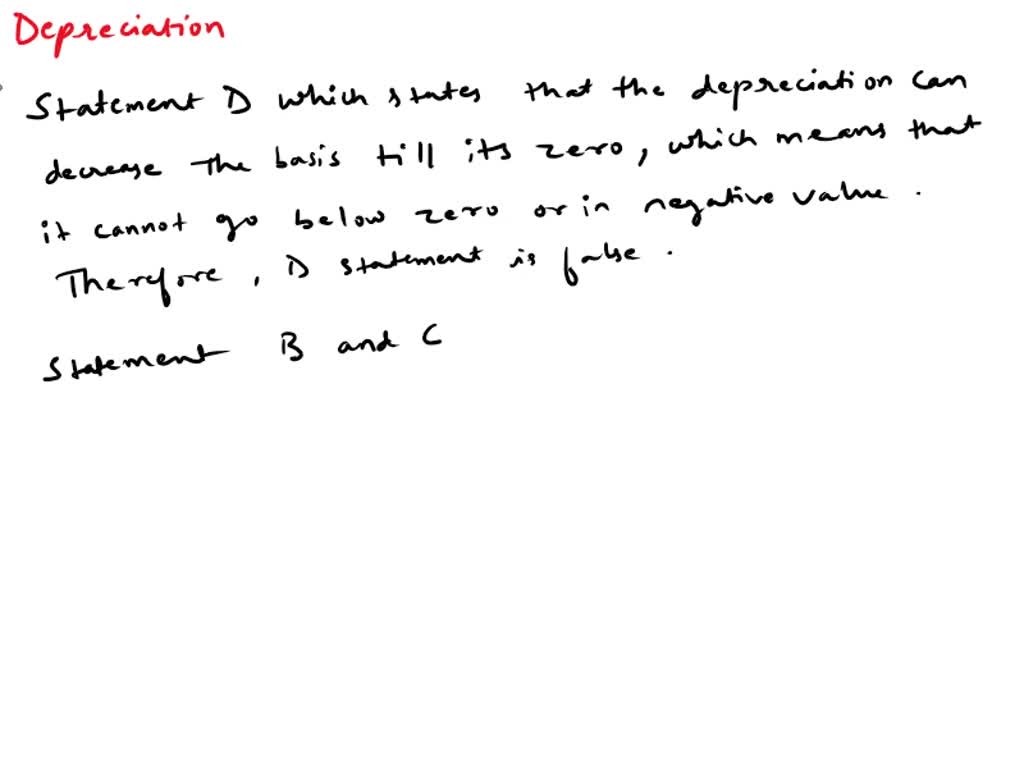 Depreciation
Statement D which states that the depreciation can
decrease the basis till its zero, which means that
it cannot go below zero or in negative value.
Therefore, D statement is false.
Statement B and C